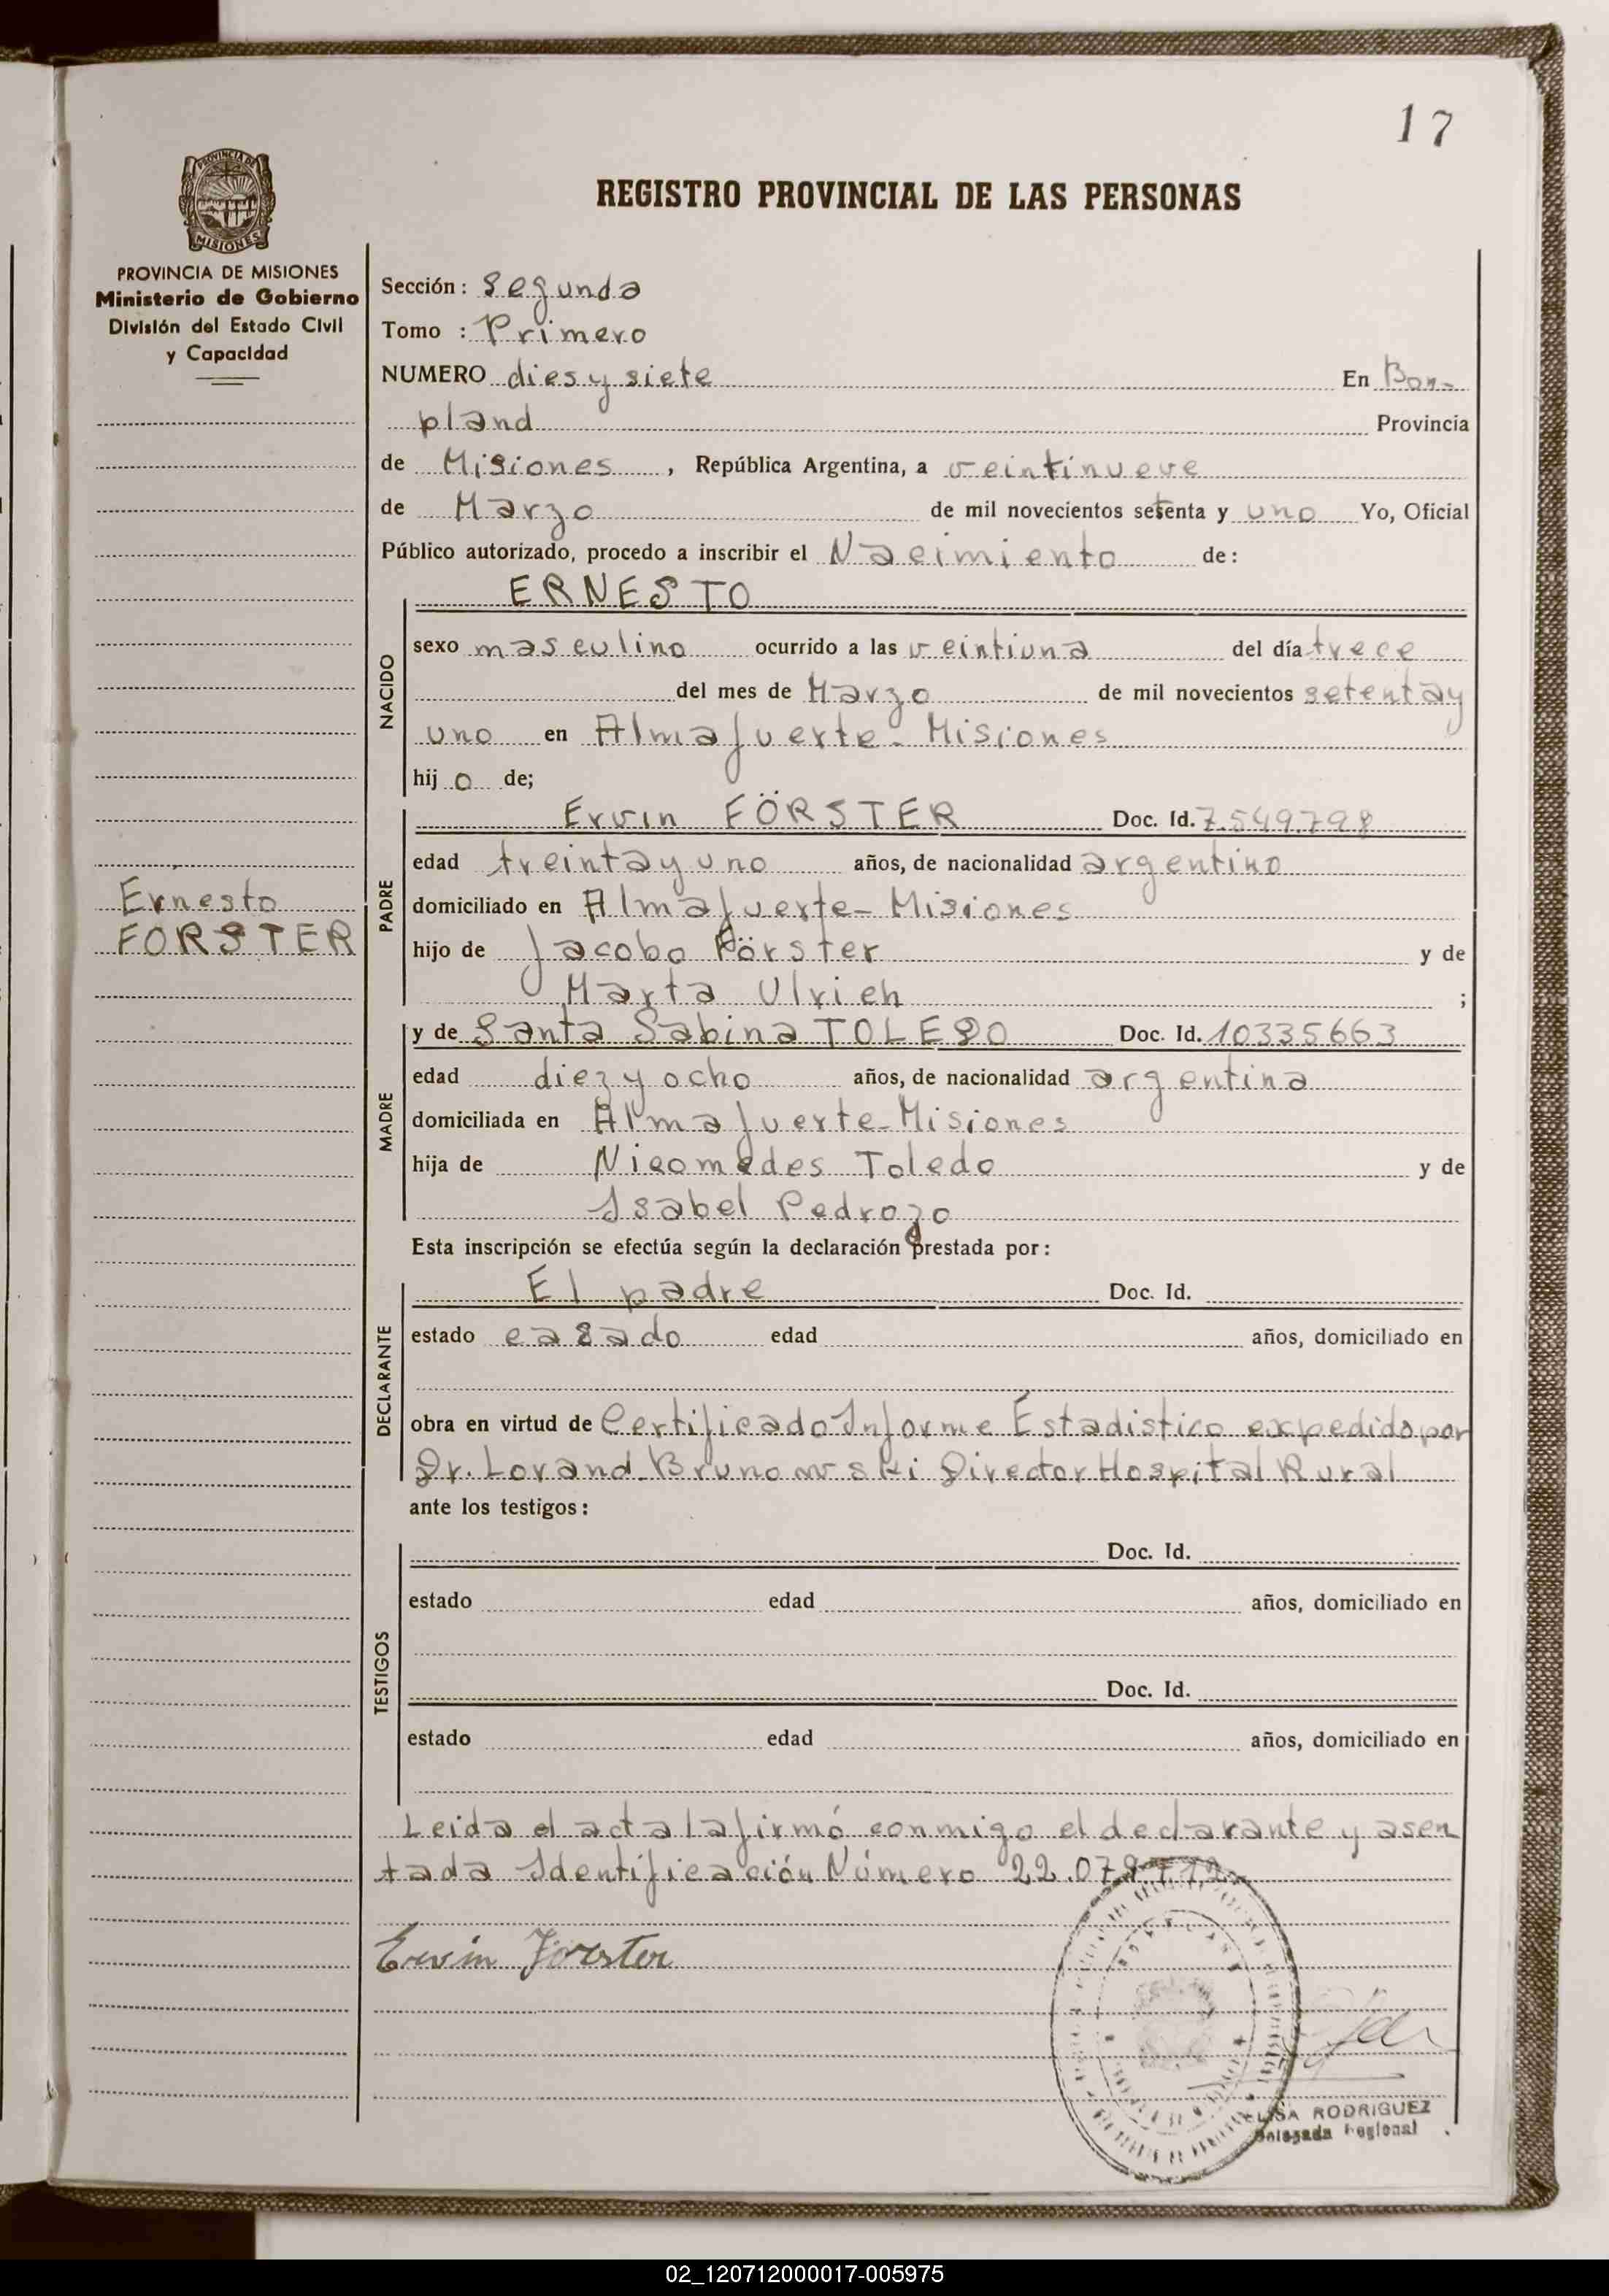 17
PROVINCIA DE
MISIONES
REGISTRO PROVINCIAL DE LAS PERSONAS
PROVINCIA DE MISIONES
Ministerio de Gobierno
División del Estado Civil
y Capacidad
Sección: Segunda
Tomo : Primero
NUMERO dies y siete En Bon-
pland Provincia
de Misiones, República Argentina, a veintinueve
de Marzo de mil novecientos setenta y uno Yo, Oficial
Público autorizado, procedo a inscribir el Nacimiento de:
ERNESTO
NACIDO
sexo masculino ocurrido a las veintiuna del día trece
del mes de Marzo de mil novecientos setenta y
uno en Almafuerte - Misiones
hij o de;
PADRE
Ervin FÖRSTER Doc. Id. 7.549.798
edad treinta y uno años, de nacionalidad argentino
domiciliado en Almafuerte - Misiones
hijo de Jacobo Förster y de
Marta Ulrich ;
Ernesto
FORSTER
MADRE
y de Santa Sabina TOLEDO Doc. Id. 10335663
edad diez y ocho años, de nacionalidad argentina
domiciliada en Almafuerte - Misiones
hija de Nicomedes Toledo y de
Isabel Pedrozo
Esta inscripción se efectúa según la declaración prestada por:
DECLARANTE
El padre Doc. Id.
estado casado edad años, domiciliado en
obra en virtud de Certificado Informe Estadistico expedido por
Dr. Lorand Brunowski Director Hospital Rural
ante los testigos:
TESTIGOS
Doc. Id.
estado edad años, domiciliado en
Doc. Id.
estado edad años, domiciliado en
Leida el acta la firmó conmigo el declarante y asen
tada Identificación Número
Ervin Förster
ELISA RODRIGUEZ
Delegada Regional
02_120712000017-005975